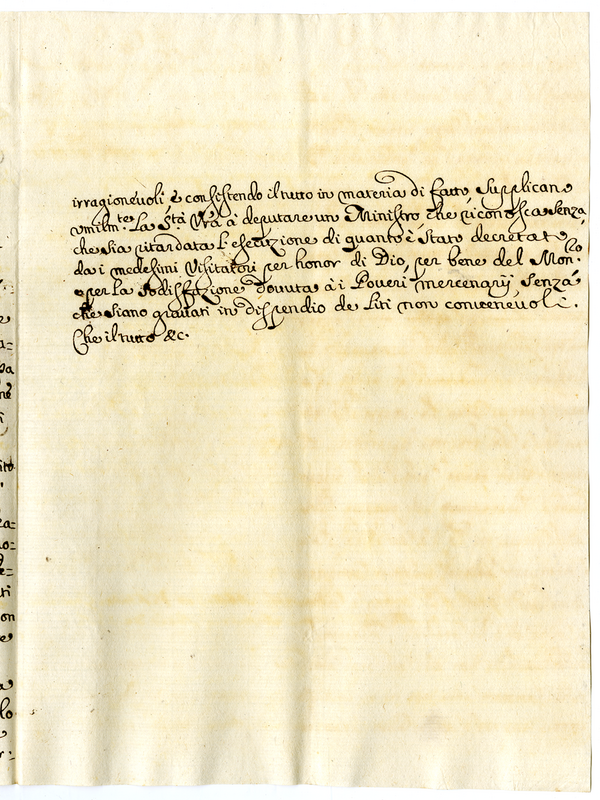 irragionevoli e consistendo il tutto in materia di fatto, Supplicano
umilm.te La S.tà Vrã à deputare un Ministro che riconosca senza,
che sia ritardata l'esecuzione di quanto è stato decretato
da i medesimi Visitatori per honor di Dio, per bene del Mon.ro
e per la sodisfazione dovuta à i Poveri mercenarij, senzà
che siano gravati in dispendio de liti non convenevoli.
Che il tutto &c.